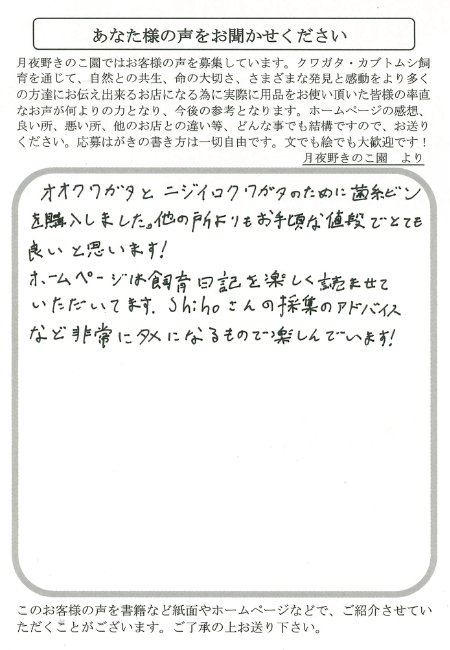 あなた様の声をお聞かせください
月夜野きのこ園ではお客様の声を募集しています。クワガタ・カブトムシ飼
育を通じて、自然との共生、命の大切さ、さまざまな発見と感動をより多く
の方達にお伝え出来るお店になる為に実際に用品をお使い頂いた皆様の率直
なお声が何よりの力となり、今後の参考となります。ホームページの感想、
良い所、悪い所、他のお店との違い等、どんな事でも結構ですので、お送り
ください。応募はがきの書き方は一切自由です。文でも絵でも大歓迎です！
月夜野きのこ園　より
オオクワガタと ニジイロクワガタのために菌糸ビン
を購入しました。他の所よりもお手頃な値段でとても
良いと思います!
ホームページは飼育日記を楽しく読ませて
いただいてます。Shihoさんの採集のアドバイス
など非常にタメになるもので楽しんでいます!
このお客様の声を書籍など紙面やホームページなどで、ご紹介させてい
ただくことがございます。ご了承の上お送り下さい。